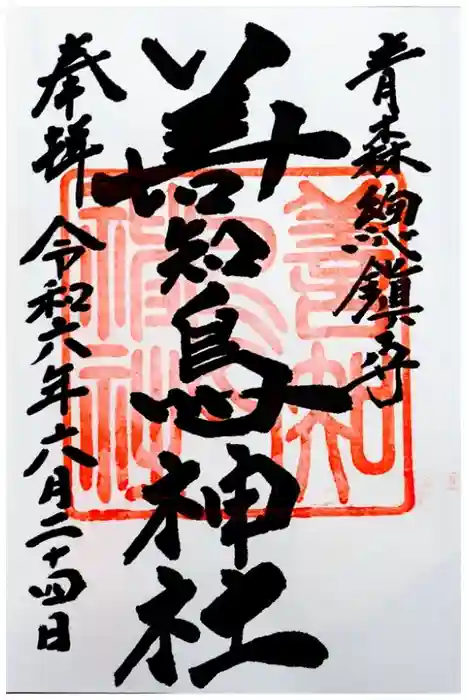 青森總鎮守
善知鳥神社
奉拝 令和六年六月二十四日
善知鳥神社